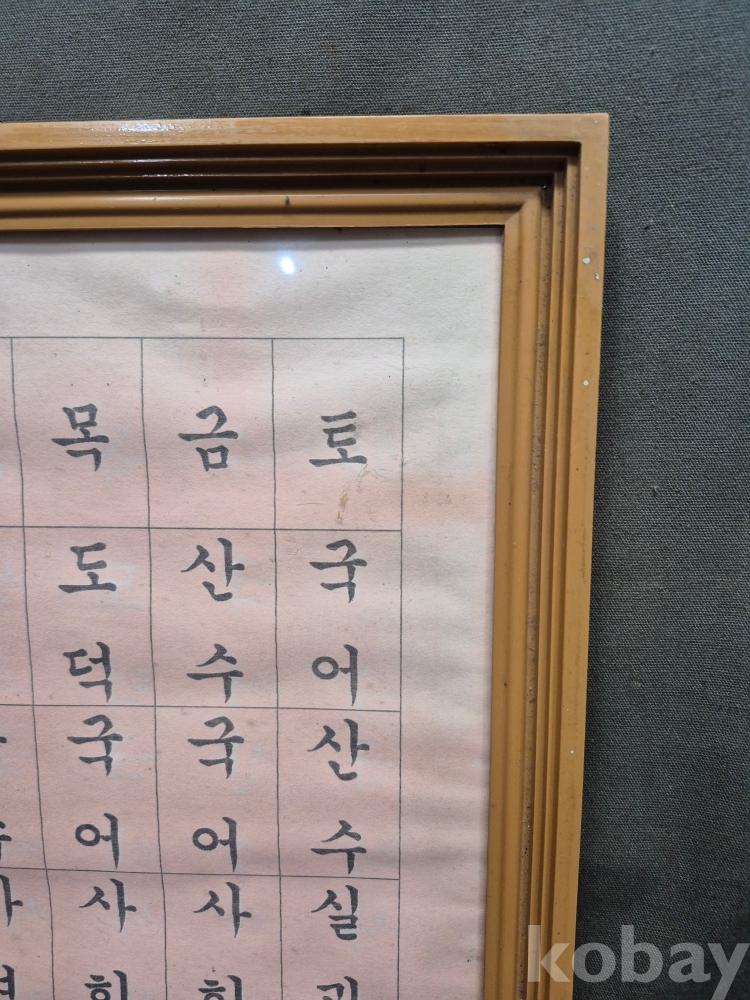 목 금 토
도덕 산수 국어
국어 국어 산수
사회 사회 실과
kobay